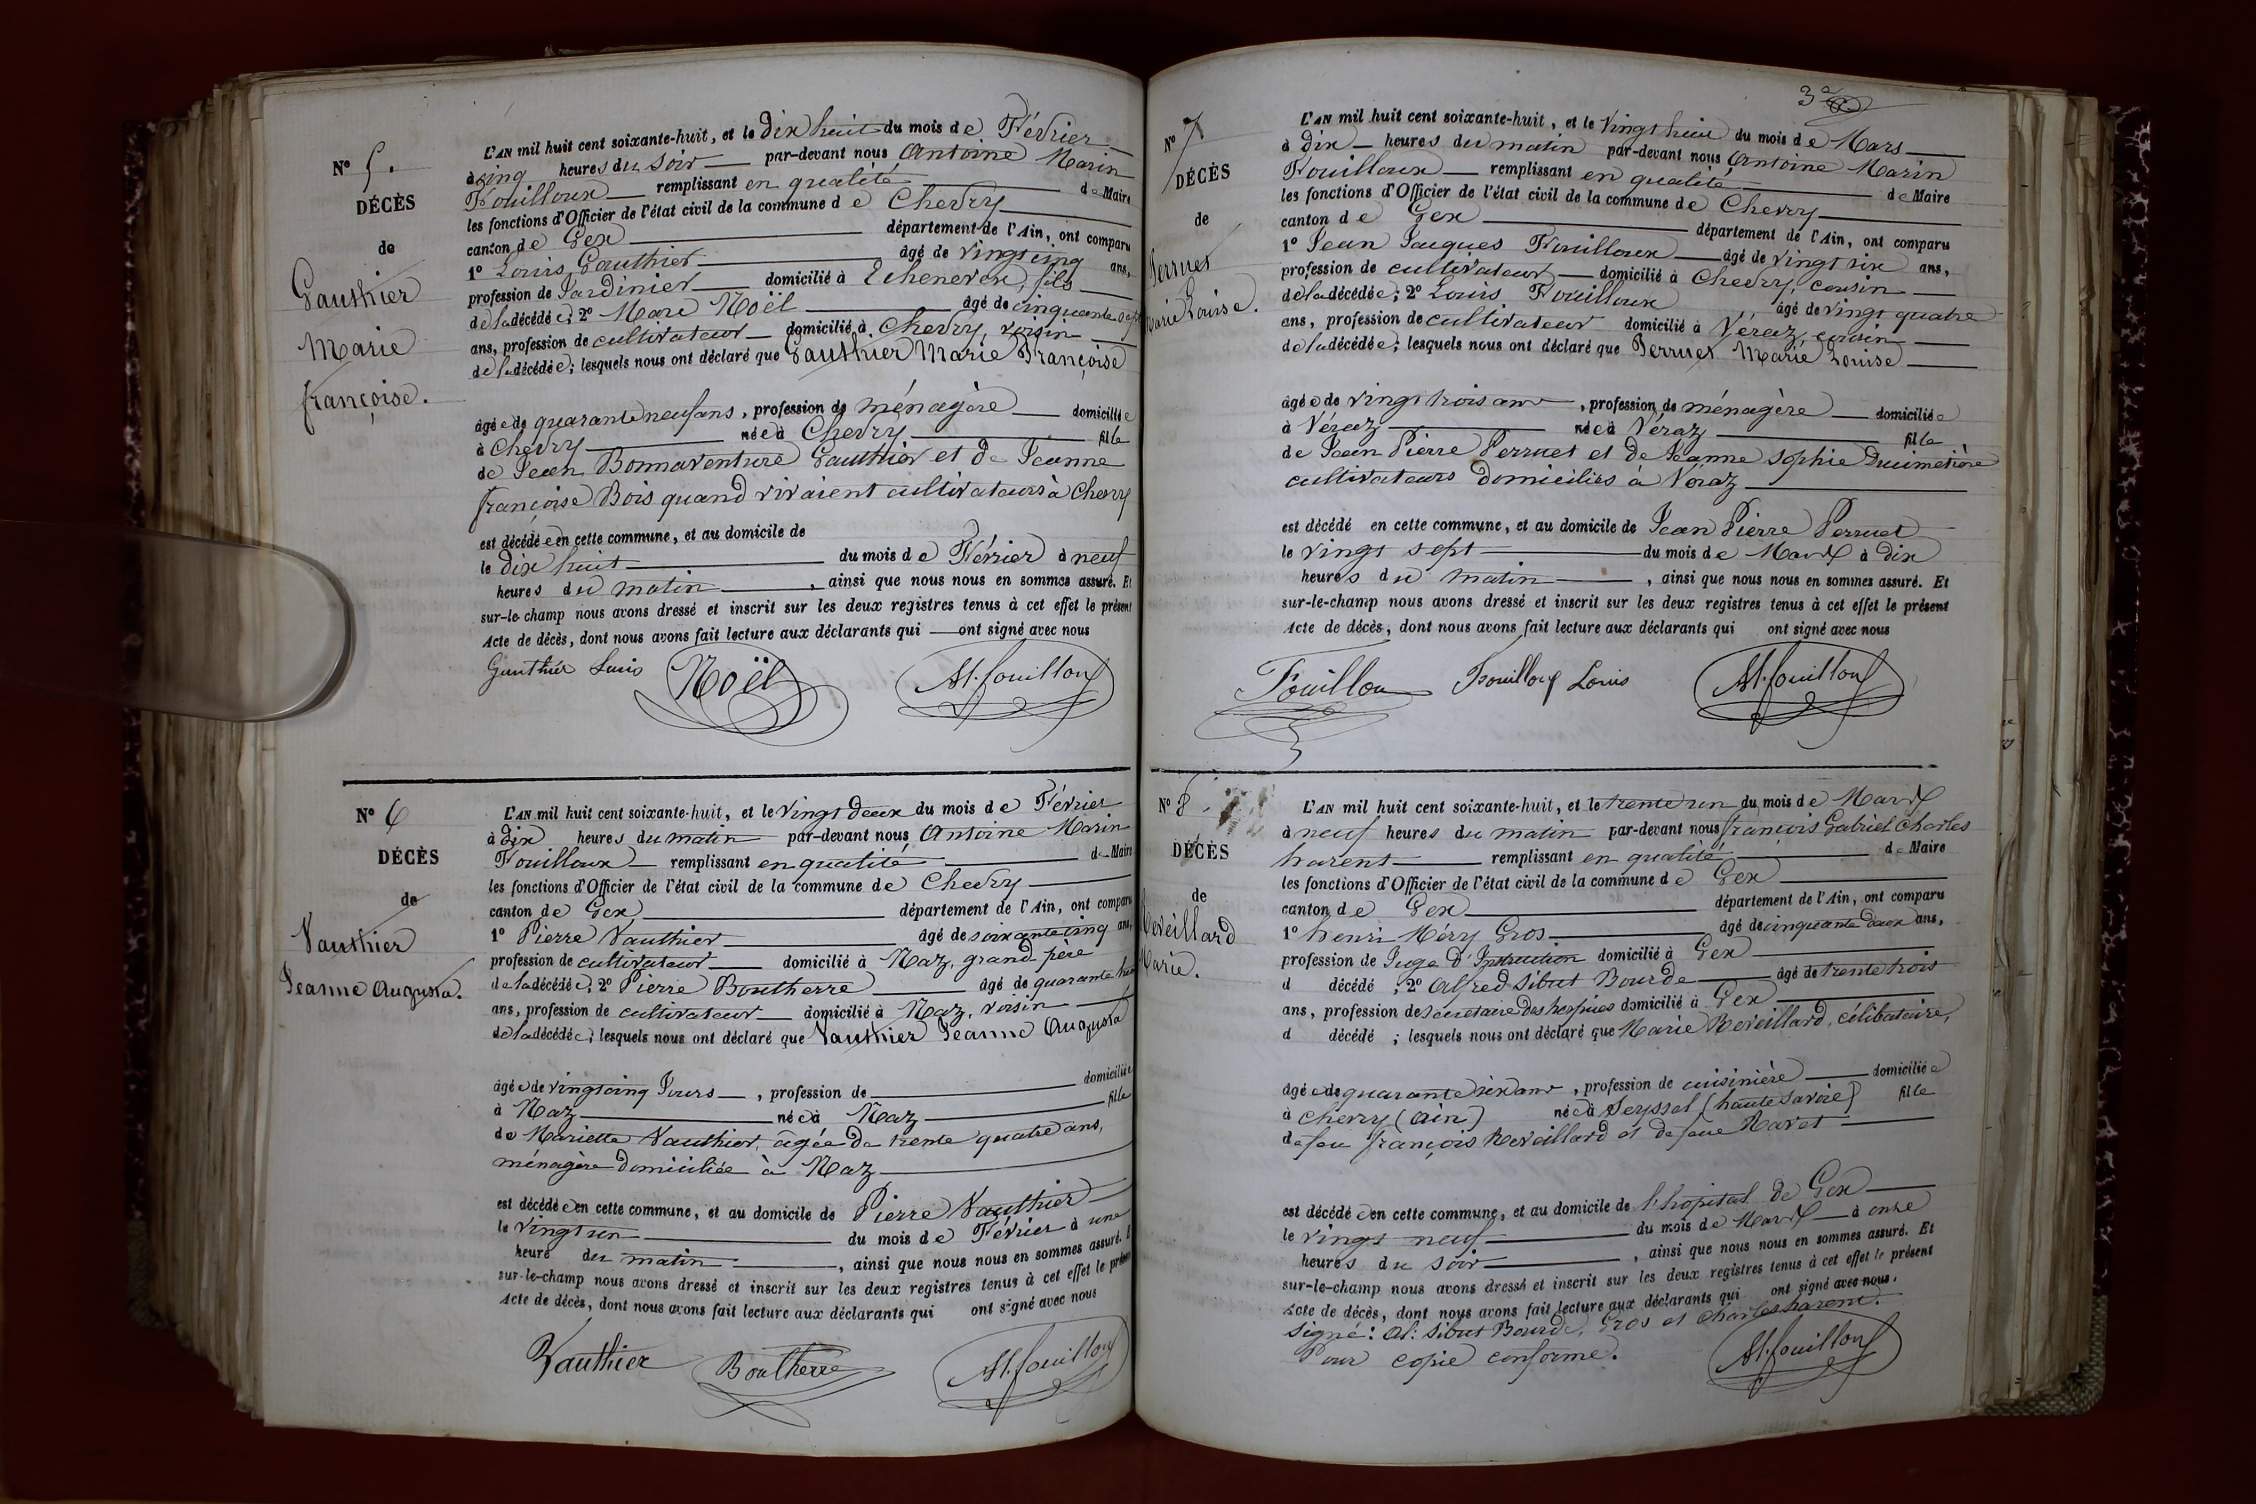 N° 5.
DÉCÈS
de
Gauthier
Marie
françoise.
L'AN mil huit cent soixante-huit, et le Dix huit du mois de Février
à cinq heures du soir par-devant nous Antoine Marin
Fouilloux remplissant en qualité de Maire
les fonctions d'Officier de l'état civil de la commune de Chevry
canton de Gex département de l'Ain, ont comparu
1° Louis Gauthier âgé de vingt cinq ans,
profession de Jardinier domicilié à Echenevex, fils
de la décédée; 2° Marc Noël âgé de cinquante sept
ans, profession de cultivateur domicilié à Chevry, voisin
de la décédée; lesquels nous ont déclaré que Gauthier Marie Françoise
âgée de quarante neuf ans, profession de ménagère domiciliée
à Chevry née à Chevry fille
de Jean Bonnaventure Gauthier et de Jeanne
françoise Bois quand vivaient cultivateurs à Chevry
est décédée en cette commune, et au domicile de
le dix huit du mois de Février à neuf
heures du matin, ainsi que nous nous en sommes assuré. Et
sur-le-champ nous avons dressé et inscrit sur les deux registres tenus à cet effet le présent
Acte de décès, dont nous avons fait lecture aux déclarants qui ont signé avec nous
Gauthier Louis Noël AM. fouilloux
N° 6
DÉCÈS
de
Vauthier
Jeanne Augusta.
L'AN mil huit cent soixante-huit, et le vingt deux du mois de Février
à dix heures du matin par-devant nous Antoine Marin
Fouilloux remplissant en qualité de Maire
les fonctions d'Officier de l'état civil de la commune de Chevry
canton de Gex département de l'Ain, ont comparu
1° Pierre Vauthier âgé de soixante cinq ans,
profession de cultivateur domicilié à Naz, grand père
de la décédée; 2° Pierre Boutherre âgé de quarante huit
ans, profession de cultivateur domicilié à Naz, voisin
de la décédée; lesquels nous ont déclaré que Vauthier Jeanne Augusta
âgée de vingt cinq Jours, profession de domiciliée
à Naz née à Naz fille
de Mariette Vauthier, agée de trente quatre ans,
ménagère domiciliée à Naz
est décédée en cette commune, et au domicile de Pierre Vauthier
le vingt un du mois de Février à une
heure du matin, ainsi que nous nous en sommes assuré. Et
sur-le-champ nous avons dressé et inscrit sur les deux registres tenus à cet effet le présent
Acte de décès, dont nous avons fait lecture aux déclarants qui ont signé avec nous
Vauthier Boutherre AM. fouilloux
3
N° 7
DÉCÈS
de
Perruet
Marie Louise.
L'AN mil huit cent soixante-huit, et le vingt huit du mois de Mars
à dix heures du matin par-devant nous Antoine Marin
Fouilloux remplissant en qualité de Maire
les fonctions d'Officier de l'état civil de la commune de Chevry
canton de Gex département de l'Ain, ont comparu
1° Jean Jacques Fouilloux âgé de vingt six ans,
profession de cultivateur domicilié à Chevry, cousin
de la décédée; 2° Louis Fouilloux âgé de vingt quatre
ans, profession de cultivateur domicilié à Véraz, cousin
de la décédée; lesquels nous ont déclaré que Perruet Marie Louise
âgée de vingt trois ans, profession de ménagère domiciliée
à Véraz née à Véraz fille
de Jean Pierre Perruet et de Jeanne Sophie Ducimetière
cultivateurs domiciliés à Véraz
est décédé en cette commune, et au domicile de Jean Pierre Perruet
le vingt sept du mois de Mars à dix
heures du matin, ainsi que nous nous en sommes assuré. Et
sur-le-champ nous avons dressé et inscrit sur les deux registres tenus à cet effet le présent
Acte de décès, dont nous avons fait lecture aux déclarants qui ont signé avec nous
Fouilloux Fouilloux Louis AM. fouilloux
N° 8.
DÉCÈS
de
Reveillard
Marie.
L'AN mil huit cent soixante-huit, et le trente un du mois de Mars
à neuf heures du matin par-devant nous françois Gabriel Charles
harent remplissant en qualité de Maire
les fonctions d'Officier de l'état civil de la commune de Gex
canton de Gex département de l'Ain, ont comparu
1° henri Méry Gros âgé de cinquante deux ans,
profession de Juge d'Instruction domicilié à Gex
d décédé ; 2° Alfred Sibut Bourde âgé de trente trois
ans, profession de secrétaire des hospices domicilié à Gex
d décédé ; lesquels nous ont déclaré que Marie Reveillard, célibataire,
âgée de quarante six ans, profession de cuisinière domiciliée
à Chevry (Ain) née à Seyssel (haute Savoie) fille
de feu françois Reveillard et de feue Navet
est décédée en cette commune, et au domicile de l'hopital de Gex
le vingt neuf du mois de Mars à onze
heures du soir, ainsi que nous nous en sommes assuré. Et
sur-le-champ nous avons dressé et inscrit sur les deux registres tenus à cet effet le présent
Acte de décès, dont nous avons fait lecture aux déclarants qui ont signé avec nous.
Signé: Al: Sibut Bourde, Gros et Charles harent.
Pour copie conforme. AM. fouilloux